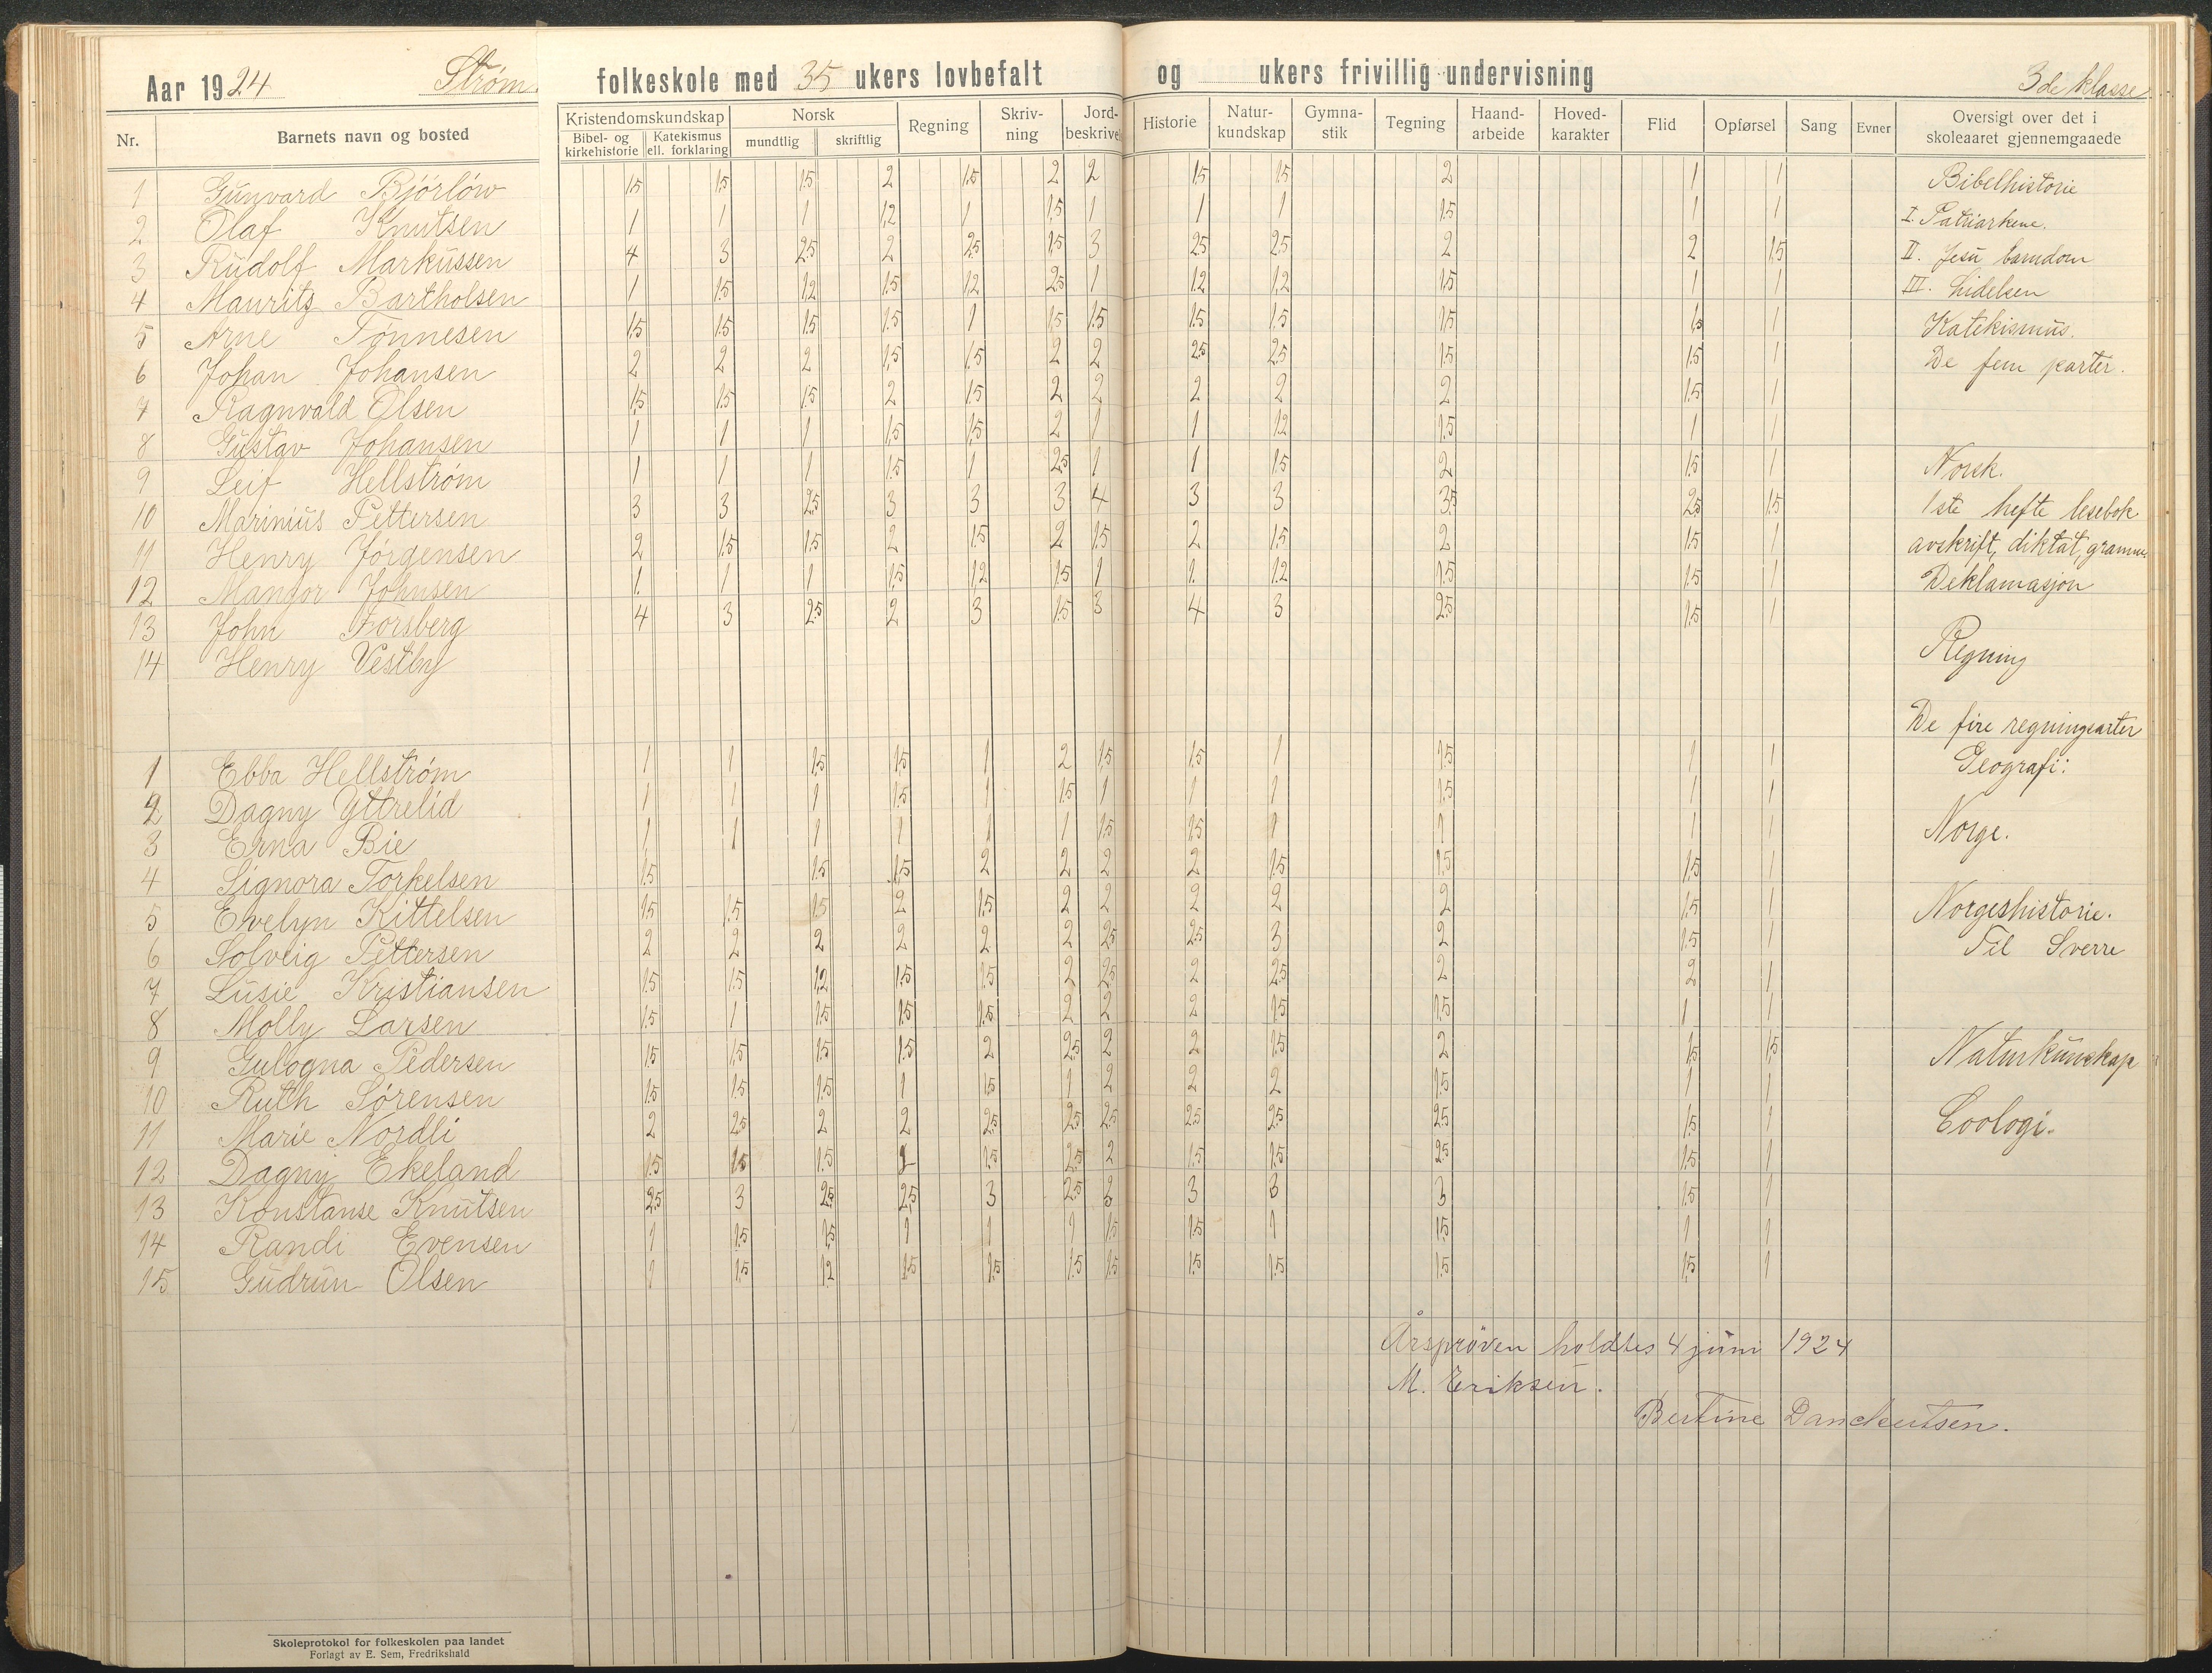 Aar 1924 Strøm folkeskole med 35 ukers lovbefalt og ukers frivillig undervisning 3de klasse
Nr. Barnets navn og bosted Kristendomskundskap Bibel- og kirkehistorie Katekismus ell. forklaring Norsk mundtlig skriftlig Regning Skriv-ning Jord-beskrivel Historie Natur-kundskap Gymna-stik Tegning Haand-arbeide Hoved-karakter Flid Opførsel Sang Evner Oversigt over det i skoleaaret gjennemgaaede
1 Gunvard Bjørløw 1.5 1.5 1.5 2 1.5 2 2 1.5 1.5 2 1 1 Bibelhistorie
2 Olaf Knutsen 1 1 1 1.2 1 1.5 1 1 1 1.5 1 1 I. Patriarkene.
3 Rudolf Markussen 4 3 2.5 2 2.5 1.5 3 2.5 2.5 2 2 1.5 II. Jesu barndom
4 Mauritz Bartholsen 1 1.5 1.2 1.5 1.2 2.5 1 1.2 1.2 1.5 1 1 III. Lidelsen
5 Arne Tønnesen 1.5 1.5 1.5 1.5 1 1.5 1.5 1.5 1.5 1.5 1.5 1 Katekismus.
6 Johan Johansen 2 2 2 1.5 1.5 2 2 2.5 2.5 1.5 1.5 1 De fem parter.
7 Ragnvald Olsen 1.5 1.5 1.5 2 1.5 2 2 2 2 2 1.5 1
8 Gustav Johansen 1 1 1 1.5 1.5 2 1 1 1.2 1.5 1 1
9 Leif Hellstrøm 1 1 1 1.5 1 2.5 1 1 1.5 2 1.5 1 Norsk.
10 Marinius Pettersen 3 3 2.5 3 3 3 4 3 3 3.5 2.5 1.5 1ste hefte lesebok
11 Henry Jørgensen 2 1.5 1.5 2 1.5 2 1.5 2 1.5 2 1.5 1 avskrift, diktat, gramm.
12 Mangor Johnsen 1 1 1 1.5 1.2 1.5 1 1 1.2 1.5 1.5 1 Deklamasjon
13 John Forsberg 4 3 2.5 2 3 1.5 3 4 3 2.5 1.5 1
14 Henry Vestby Regning
De fire regningsarter
1 Ebba Hellstrøm 1 1 1.5 1.5 1 2 1.5 1.5 1 1.5 1 1 Geografi:
2 Dagny Yttrelid 1 1 1 1.5 1 1.5 1 1 1 1.5 1 1
3 Erna Bie 1 1 1 1 1 1 1.5 1.5 1 1 1 1 Norge.
4 Signora Torkelsen 1.5 1.5 1.5 2 2 2 2 1.5 1.5 1.5 1
5 Evelyn Kittelsen 1.5 1.5 1.5 2 1.5 2 2 2 2 2 1.5 1 Norgeshistorie.
6 Solveig Pettersen 2 2 2 2 2 2 2.5 2.5 3 2 1.5 1 Til Sverre
7 Lusie Kristiansen 1.5 1.5 1.2 1.5 1.5 2 2.5 2 2.5 2 2 1
8 Molly Larsen 1.5 1 1.5 1.5 1.5 2 2 2 1.5 1.5 1 1
9 Gulogna Pedersen 1.5 1.5 1.5 1.5 2 2.5 2 2 1.5 2 1.5 1.5 Naturkunskap
10 Ruth Sørensen 1.5 1.5 1.5 1 1.5 1 2 2 2 1.5 1 1
11 Marie Nordli 2 2.5 2 2 2.5 2.5 2.5 2.5 2.5 2.5 1.5 1 Zoologi.
12 Dagny Ekeland 1.5 1.5 1.5 1.5 2.5 2 1.5 1.5 2.5 1.5 1
13 Konstanse Knutsen 2.5 3 2.5 2.5 3 2.5 3 3 3 3 1.5 1
14 Randi Evensen 1 1.5 1.5 1 1 1 1.5 1.5 1 1.5 1 1
15 Gudrun Olsen 1 1.5 1.2 1.5 1.5 1.5 1.5 1.5 1.5 1.5 1.5 1
Årsprøven holdtes 4 juni 1924
M. Eriksen.
Bertine Danckertsen.
Skoleprotokol for folkeskolen paa landet
Forlagt av E. Sem, Fredrikshald